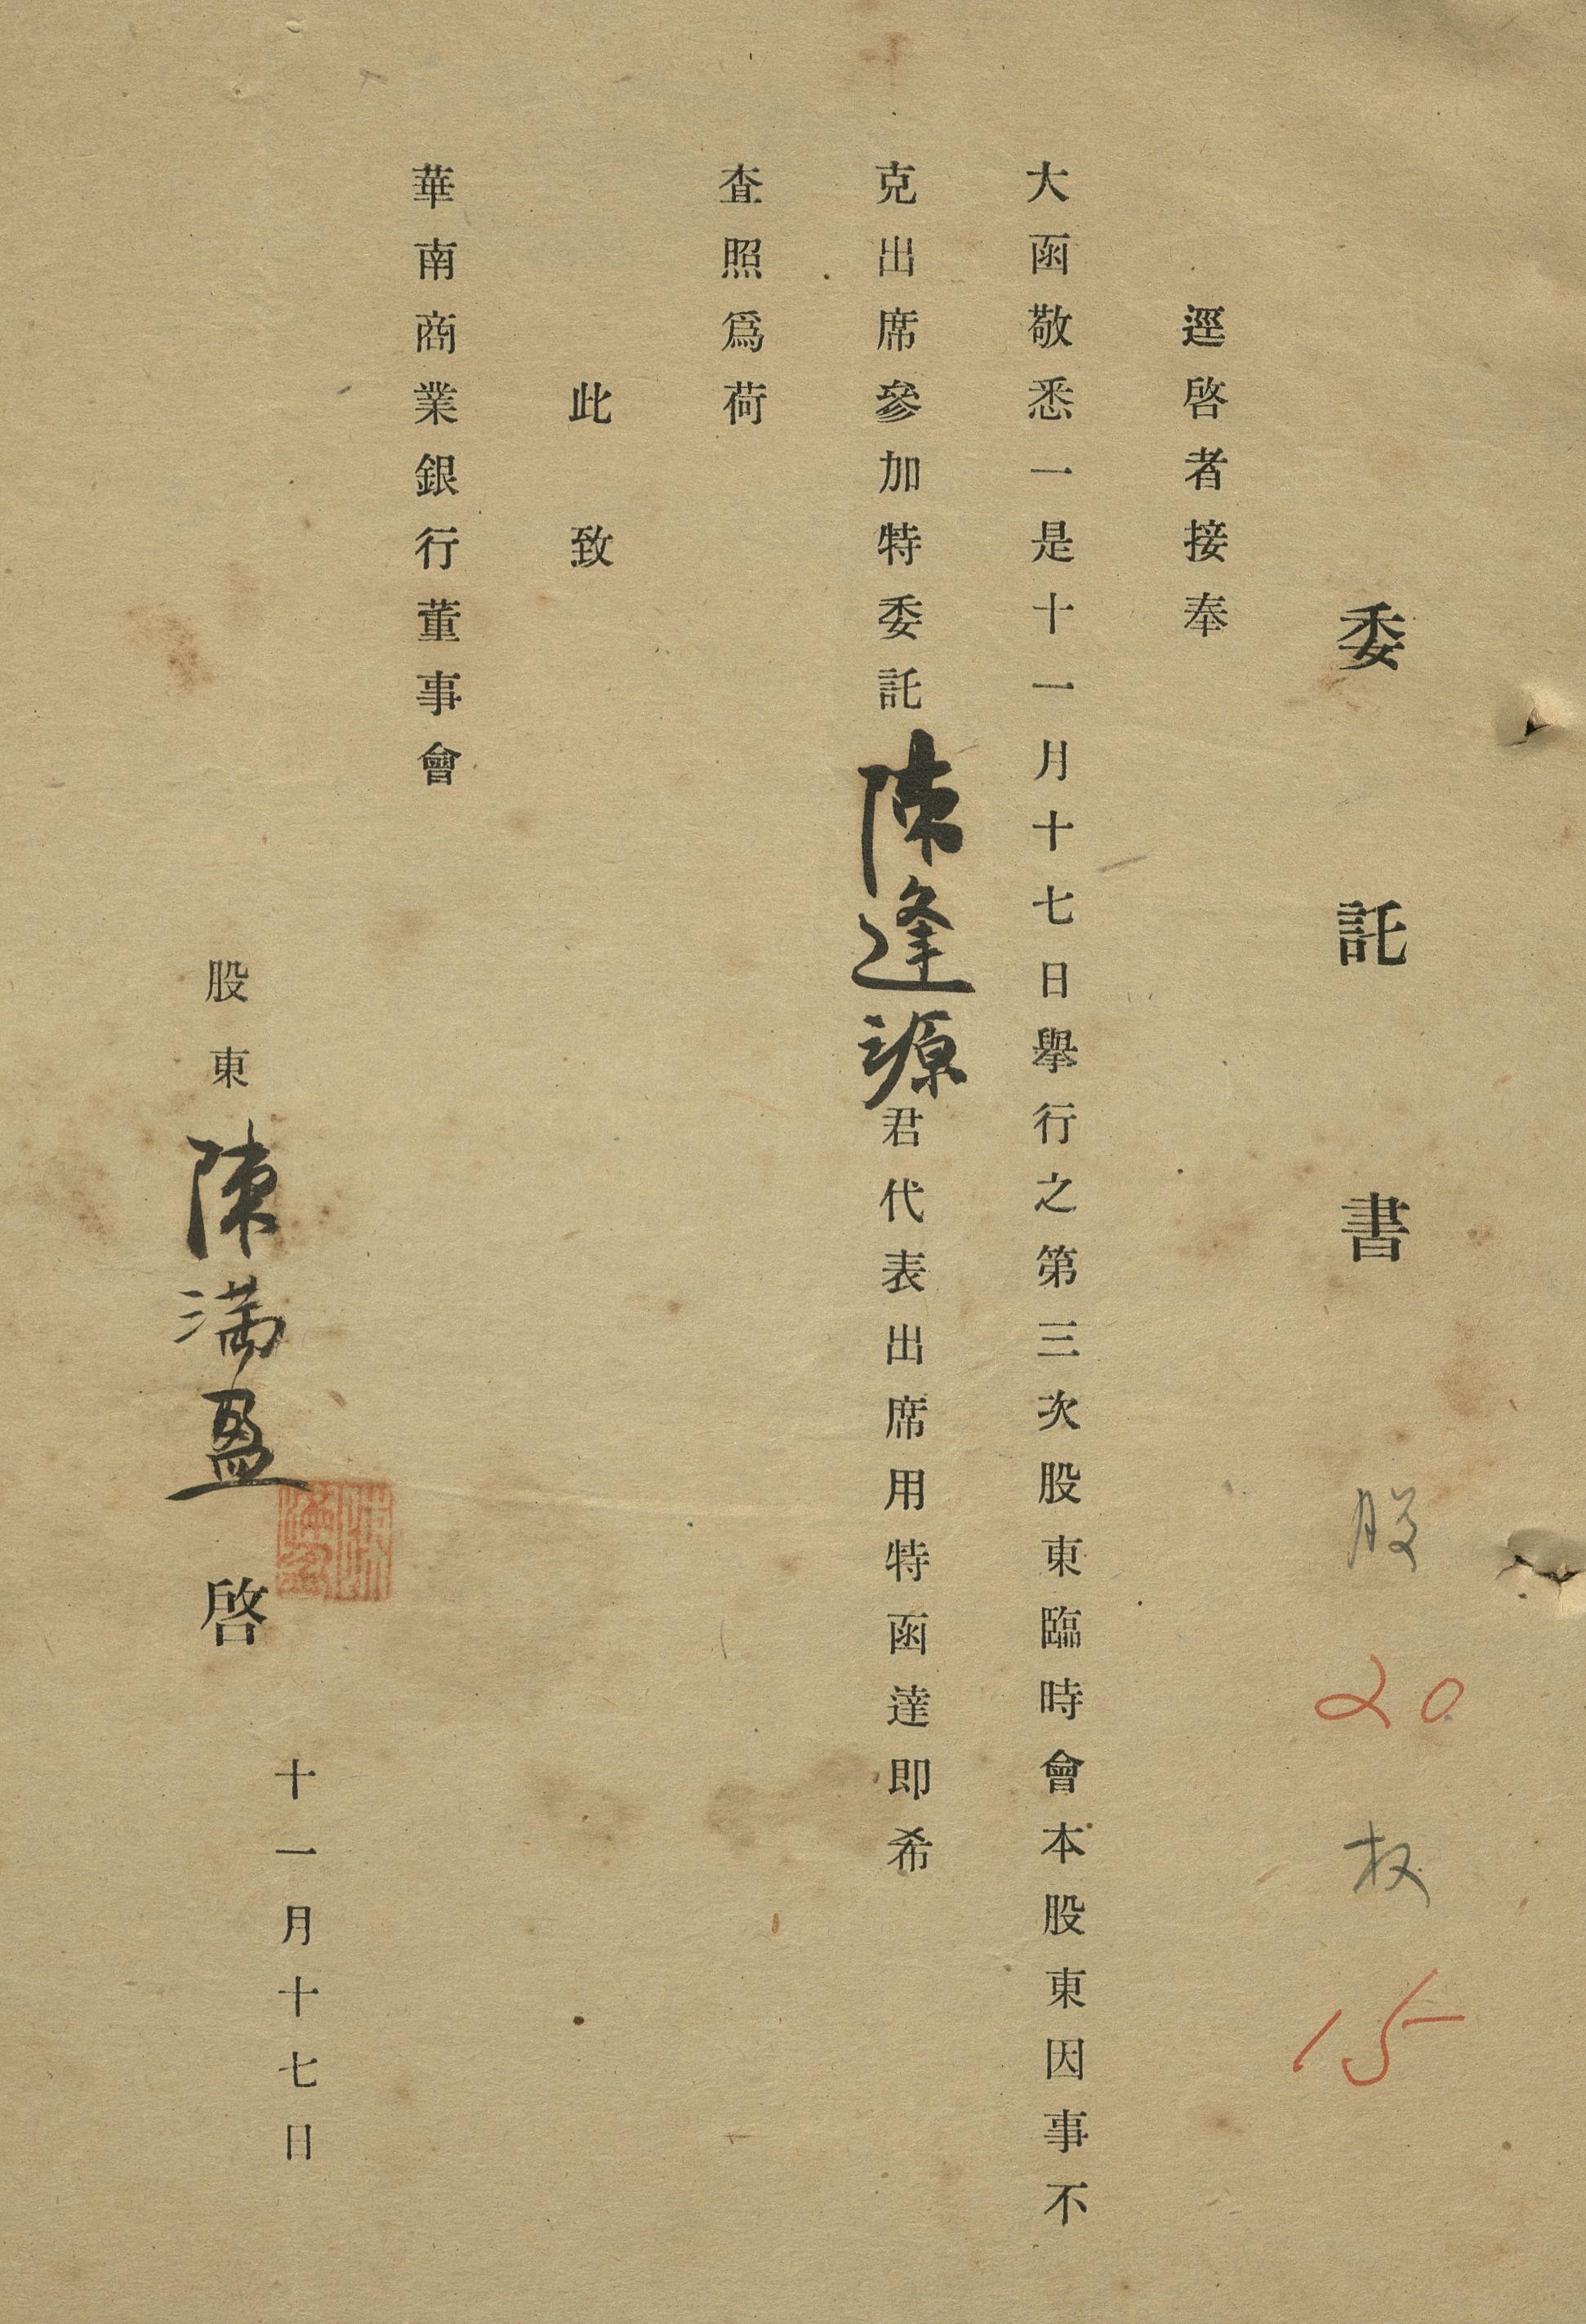 委託書
股 20 权 15
逕啓者接奉
大函敬悉一是十一月十七日舉行之第三次股東臨時會本股東因事不
克出席參加特委託陳逢源君代表出席用特函達即希
査照爲荷
此致
華南商業銀行董事會
股東 陳滿盈 啓
十一月十七日